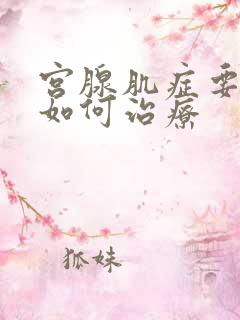 宫腺肌症要
如何治療
狐妹